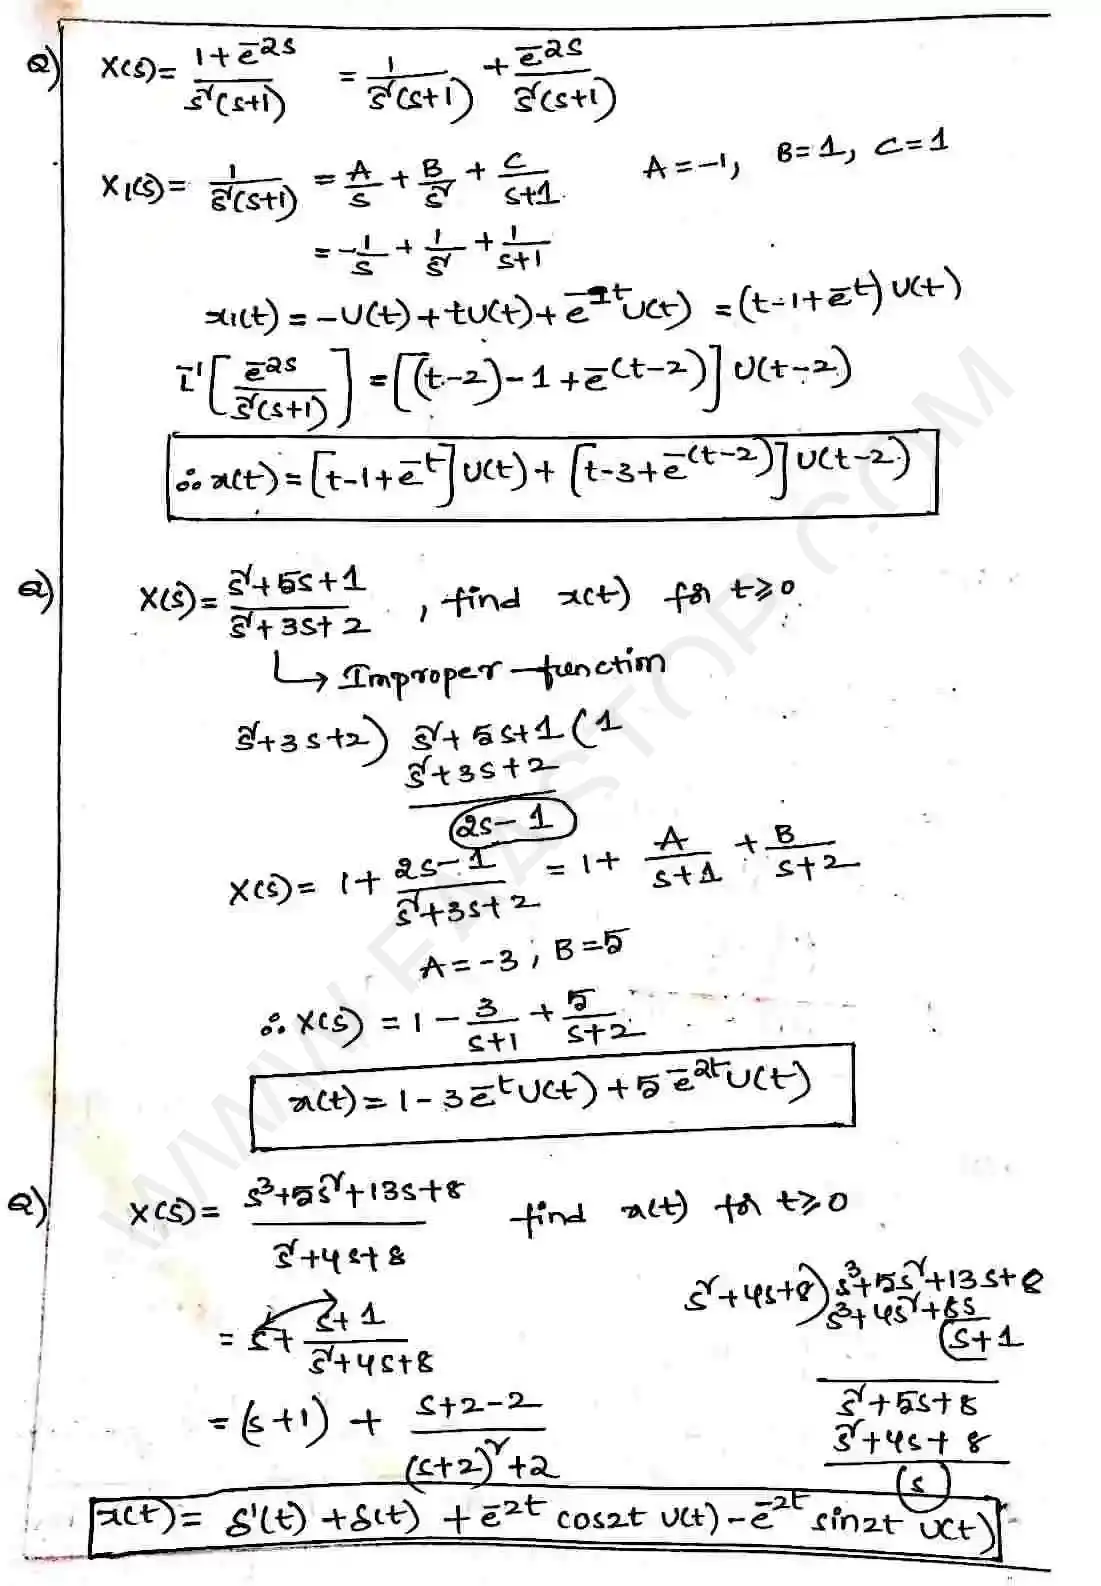 Q) X(s) = (1 + e^-2s)/(s²(s+1)) = 1/(s²(s+1)) + e^-2s/(s²(s+1))
X₁(s) = 1/(s²(s+1)) = A/s + B/s² + C/(s+1) A = -1, B = 1, C = 1
= -1/s + 1/s² + 1/(s+1)
x₁(t) = -U(t) + tU(t) + e^-1t U(t) = (t-1+e^-t) U(t)
L^-1[e^-2s/(s²(s+1))] = [(t-2)-1+e^-(t-2)] U(t-2)
∴ x(t) = [t-1+e^-t] U(t) + [t-3+e^-(t-2)] U(t-2)
Q) X(s) = (s²+5s+1)/(s²+3s+2), find x(t) for t≥0
↳ Improper function
s²+3s+2) s²+5s+1 (1
s²+3s+2
2s-1
X(s) = 1 + (2s-1)/(s²+3s+2) = 1 + A/(s+1) + B/(s+2)
A = -3, B = 5
∴ X(s) = 1 - 3/(s+1) + 5/(s+2)
x(t) = 1 - 3e^-t U(t) + 5e^-2t U(t)
Q) X(s) = (s³+5s²+13s+8)/(s²+4s+8) find x(t) for t≥0
s²+4s+8) s³+5s²+13s+8
s³+4s²+8s
s+1
= s + (s+1)/(s²+4s+8)
s²+5s+8
= (s+1) + (s+2-2)/((s+2)²+2)
s²+4s+8
s
x(t) = δ'(t) + δ(t) + e^-2t cos2t U(t) - e^-2t sin2t U(t)
WWW.FAASTOP.COM